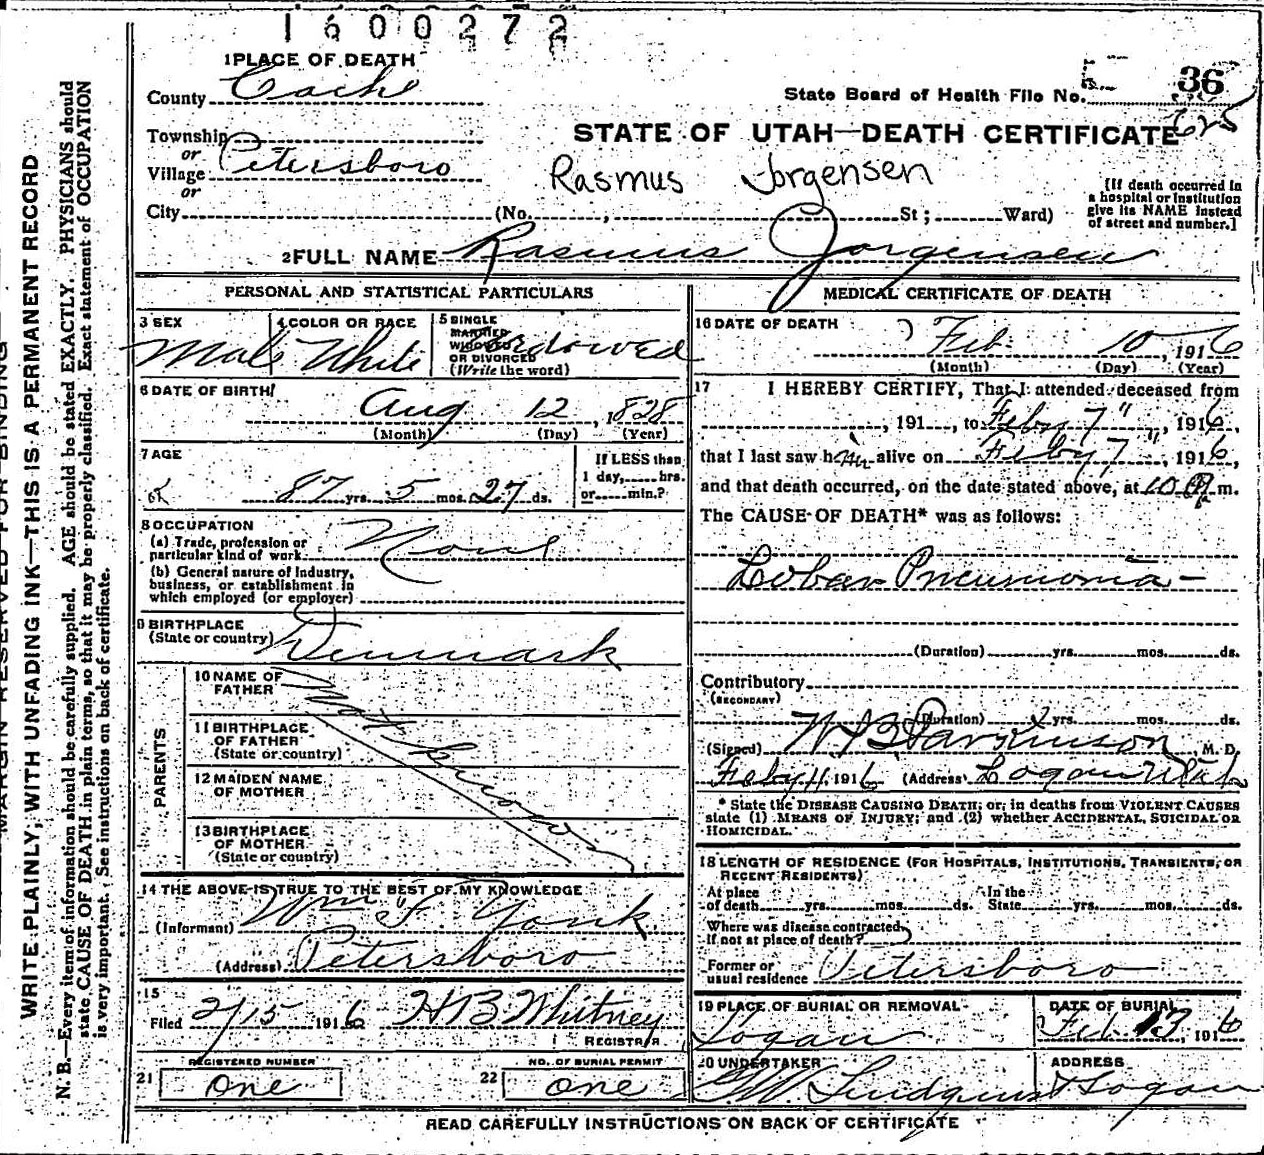 1600272
1 PLACE OF DEATH
County Cache
State Board of Health File No. 36
625
Township
or
Village Petersboro
or
STATE OF UTAH—DEATH CERTIFICATE
Rasmus Jorgensen
City (No. , St; Ward)
[If death occurred in
a hospital or institution
give its NAME instead
of street and number.]
2 FULL NAME Rasmus Jorgensen
PERSONAL AND STATISTICAL PARTICULARS
3 SEX
Male
4 COLOR OR RACE
White
5 SINGLE
MARRIED
WIDOWED
OR DIVORCED
(Write the word)
Widowed
6 DATE OF BIRTH
Aug 12, 1828
(Month) (Day) (Year)
7 AGE
87 yrs. 5 mos. 27 ds.
If LESS than
1 day, hrs.
or min.?
8 OCCUPATION
(a) Trade, profession or
particular kind of work None
(b) General nature of Industry,
business, or establishment in
which employed (or employer)
9 BIRTHPLACE
(State or country) Denmark
PARENTS
10 NAME OF
FATHER
11 BIRTHPLACE
OF FATHER
(State or country)
12 MAIDEN NAME
OF MOTHER
13 BIRTHPLACE
OF MOTHER
(State or country)
Not known
14 THE ABOVE IS TRUE TO THE BEST OF MY KNOWLEDGE
(Informant) Wm F. Yonk
(Address) Petersboro
15
Filed 2/15 1916 H B Whitney
REGISTRAR
REGISTERED NUMBER
21 One
NO. OF BURIAL PERMIT
22 One
MEDICAL CERTIFICATE OF DEATH
16 DATE OF DEATH
Feb 10, 1916
(Month) (Day) (Year)
17 I HEREBY CERTIFY, That I attended deceased from
, 191 , to Feby 7", 1916,
that I last saw him alive on Feby 7", 1916,
and that death occurred, on the date stated above, at 10 P m.
The CAUSE OF DEATH* was as follows:
Lobar Pneumonia—
(Duration) yrs. mos. ds.
Contributory
(SECONDARY)
(Duration) yrs. mos. ds.
(Signed) W B Parkinson, M. D.
Feby 11, 1916 (Address) Logan Utah
* State the DISEASE CAUSING DEATH; or, in deaths from VIOLENT CAUSES
state (1) MEANS OF INJURY; and (2) whether ACCIDENTAL, SUICIDAL OR
HOMICIDAL.
18 LENGTH OF RESIDENCE (FOR HOSPITALS, INSTITUTIONS, TRANSIENTS, OR
RECENT RESIDENTS)
At place
of death yrs. mos. ds.
In the
State yrs. mos. ds.
Where was disease contracted,
If not at place of death?
Former or
usual residence Petersboro
19 PLACE OF BURIAL OR REMOVAL
Logan
DATE OF BURIAL
Feb 13, 1916
20 UNDERTAKER
Lindquist
ADDRESS
Logan
READ CAREFULLY INSTRUCTIONS ON BACK OF CERTIFICATE
MARGIN RESERVED FOR BINDING
WRITE PLAINLY, WITH UNFADING INK—THIS IS A PERMANENT RECORD
N. B.—Every item of information should be carefully supplied. AGE should be stated EXACTLY. PHYSICIANS should
state CAUSE OF DEATH in plain terms, so that it may be properly classified. Exact statement of OCCUPATION
is very important. See instructions on back of certificate.